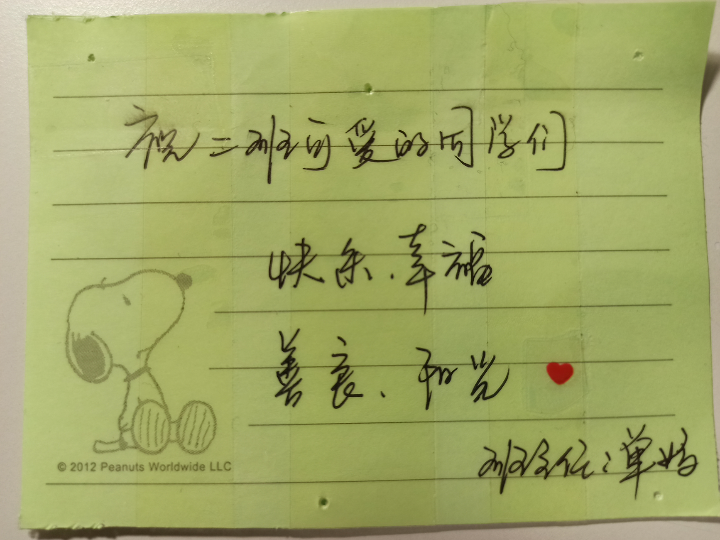 祝二班可爱的同学们
快乐、幸福
善良、阳光
© 2012 Peanuts Worldwide LLC
班主任:单